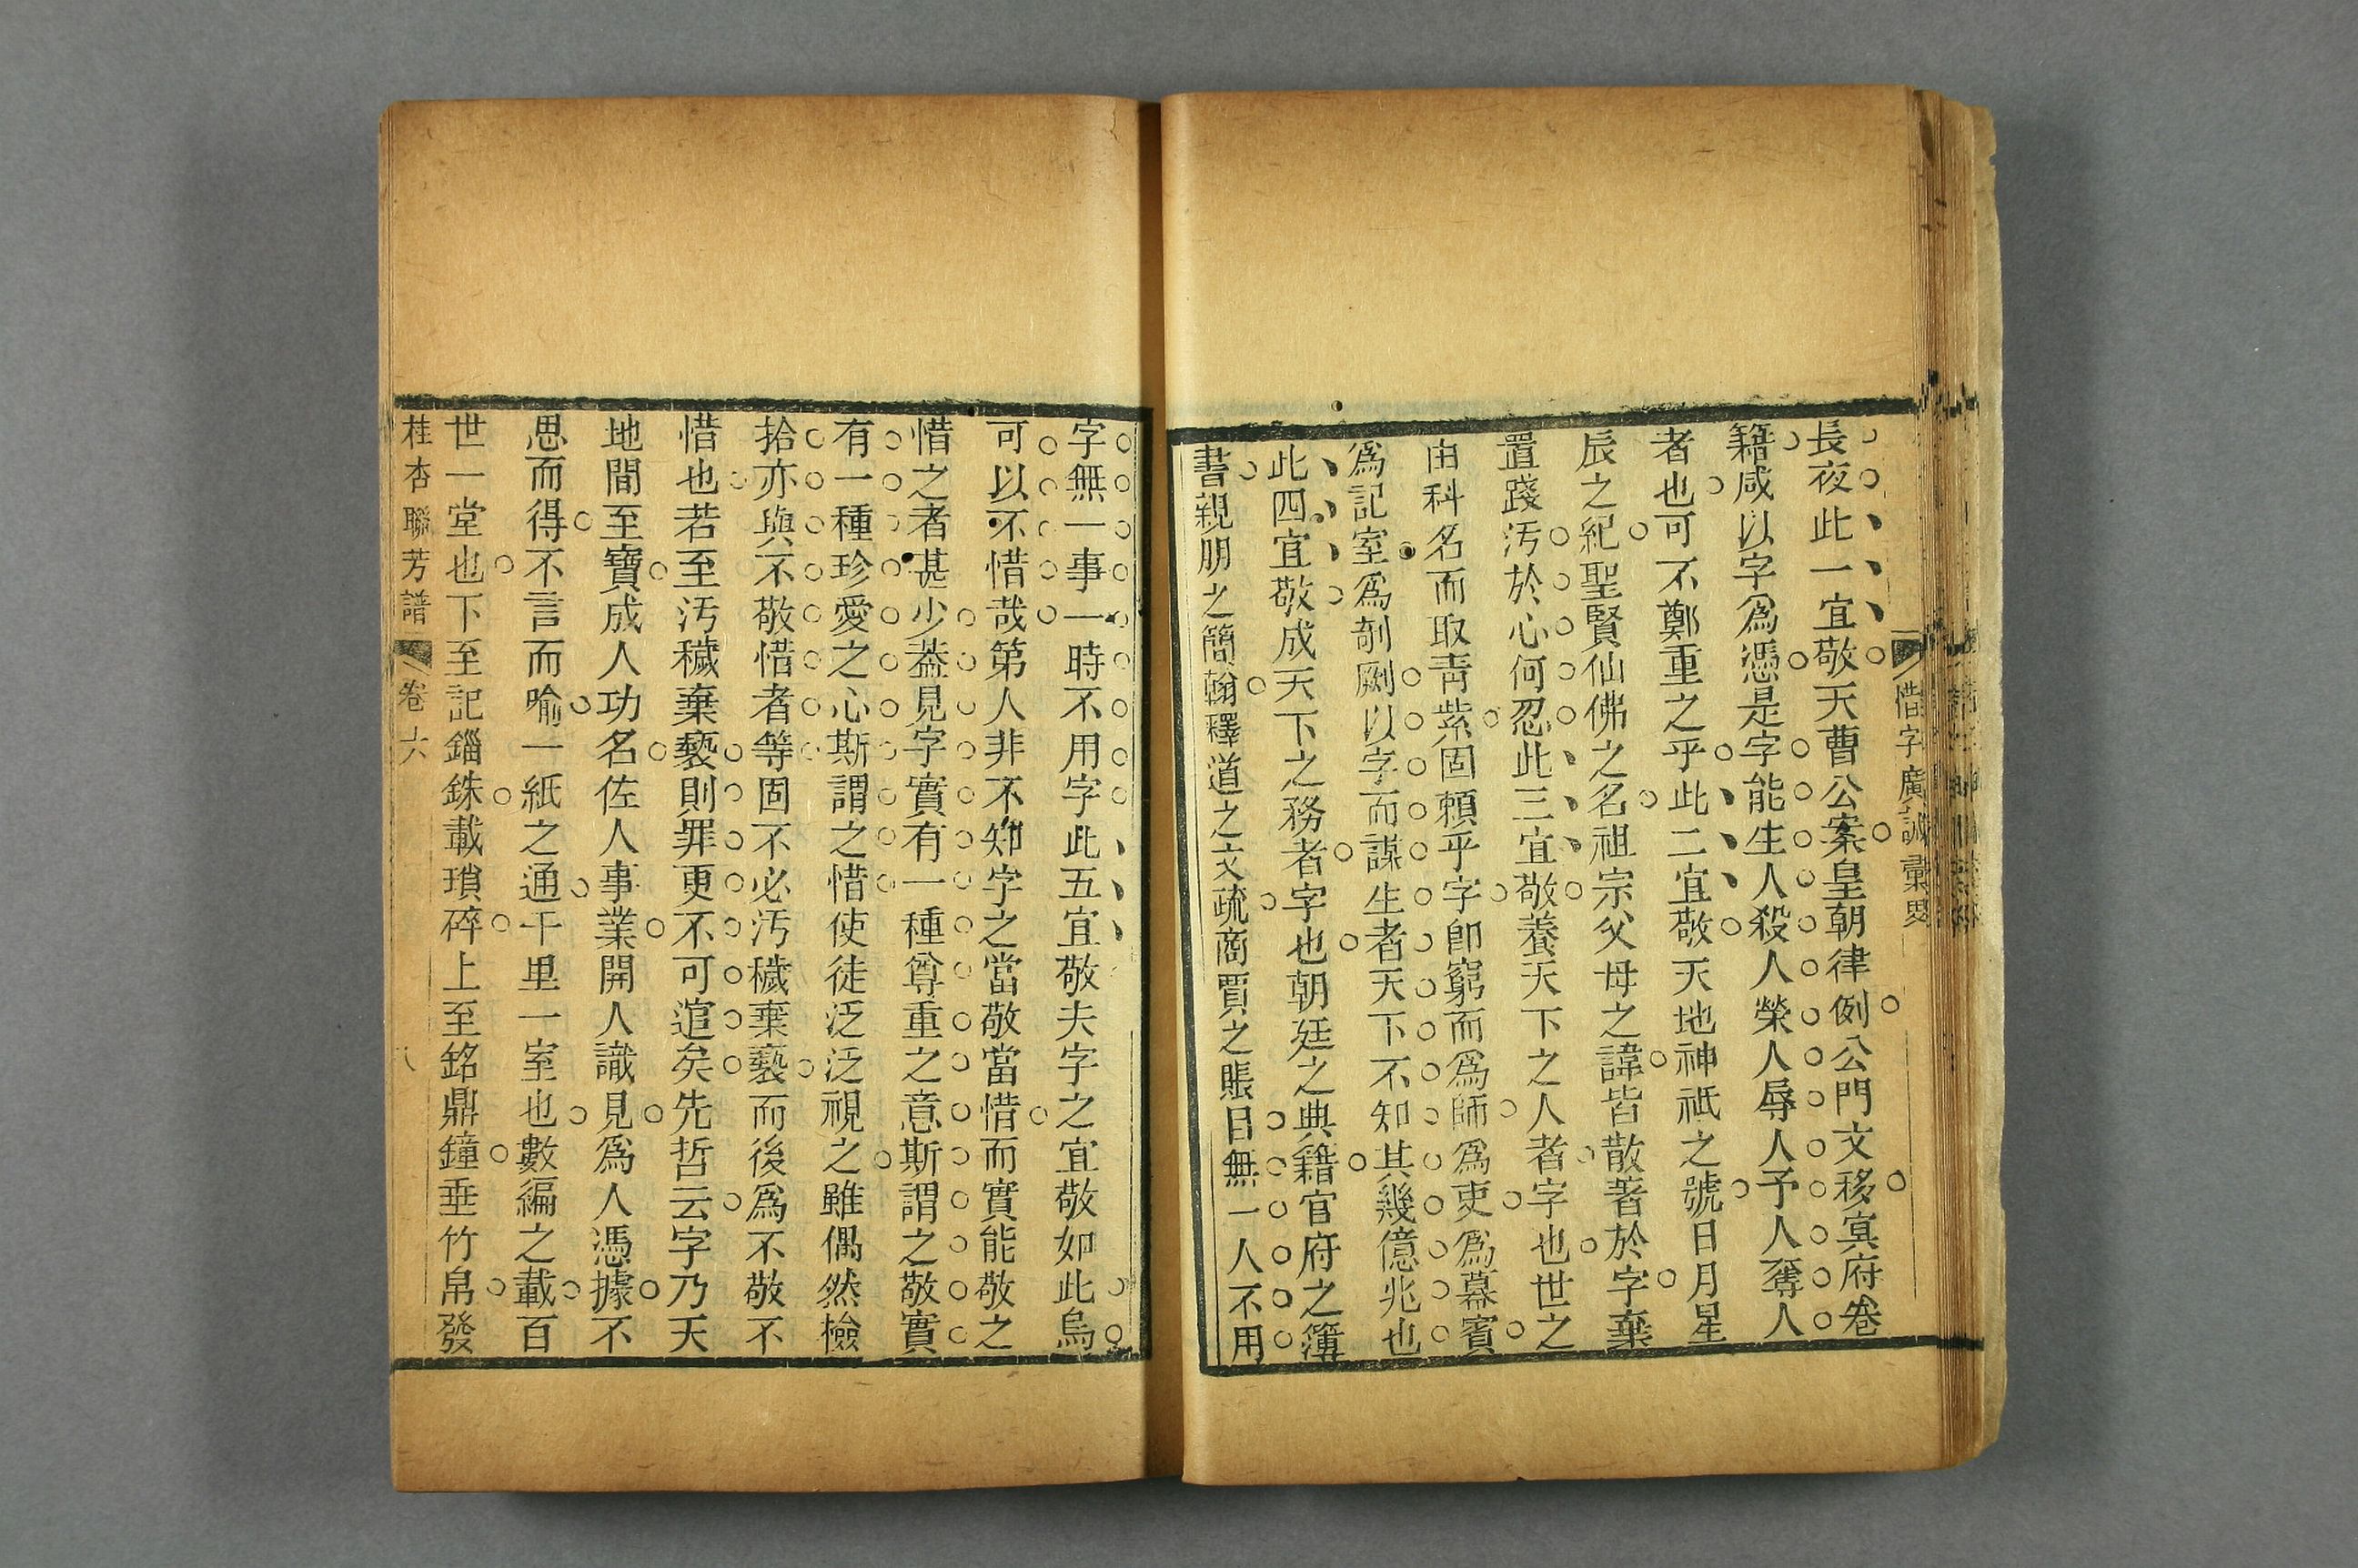 惜字廣誡彙
長夜此一宜敬天曹公案皇朝律例公門文移冥府卷
籍咸以字為憑是字能生人殺人榮人辱人予人奪人
者也可不鄭重之乎此二宜敬天地神祇之號日月星
辰之紀聖賢仙佛之名祖宗父母之諱皆散著於字棄
置踐汚於心何忍此三宜敬養天下之人者字也世之
由科名而取靑紫固賴乎字卽窮而為師為吏為幕賓
為記室為剞劂以字而謀生者天下不知其幾億兆也
此四宜敬成天下之務者字也朝廷之典籍官府之簿
書親朋之簡翰釋道之文疏商賈之賬目無一人不用
字無一事一時不用字此五宜敬夫字之宜敬如此烏
可以不惜哉第人非不知字之當敬當惜而實能敬之
惜之者甚少葢見字實有一種尊重之意斯謂之敬實
有一種珍愛之心斯謂之惜使徒泛泛視之雖偶然檢
拾亦與不敬惜者等固不必汚穢棄褻而後為不敬不
惜也若至汚穢棄褻則罪更不可逭矣先哲云字乃天
地間至寶成人功名佐人事業開人識見為人憑據不
思而得不言而喻一紙之通千里一室也數編之載百
世一堂也下至記錙銖載瑣碎上至銘鼎鐘垂竹帛發
桂杏聯芳譜 卷六 八